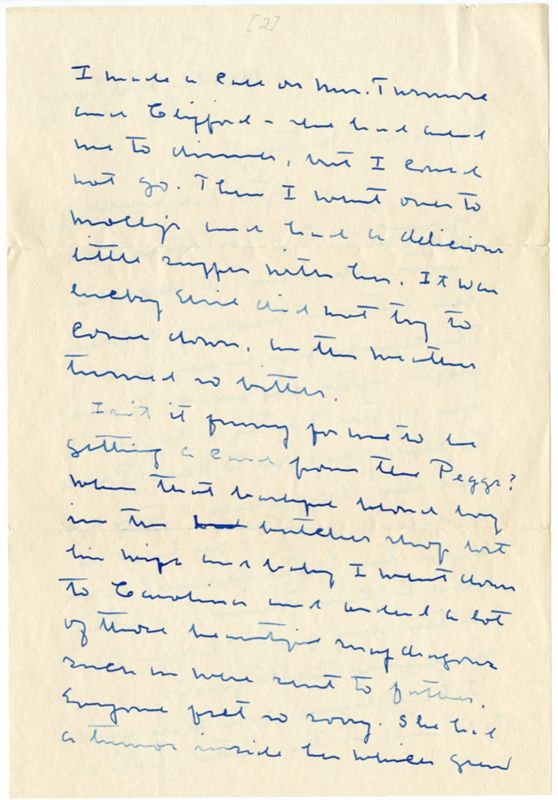 [2]
I made a call on Mrs. Turnure
and Clifford - she had asked
me to dinner, but I could
not go. Then I went over to
Molly's and had a delicious
little supper with her. It was
lucky did not try to
come down, as the weather
turned so bitter.
Isn't it funny for me to be
getting a card from the Peggs?
When that beautiful blond boy
in the butcher shop lost
his wife and baby I went down
to Carolina's and ordered a lot
of those beautiful snapdragons
such as were sent to father.
Everyone felt so sorry. She had
a tumor inside her which grew